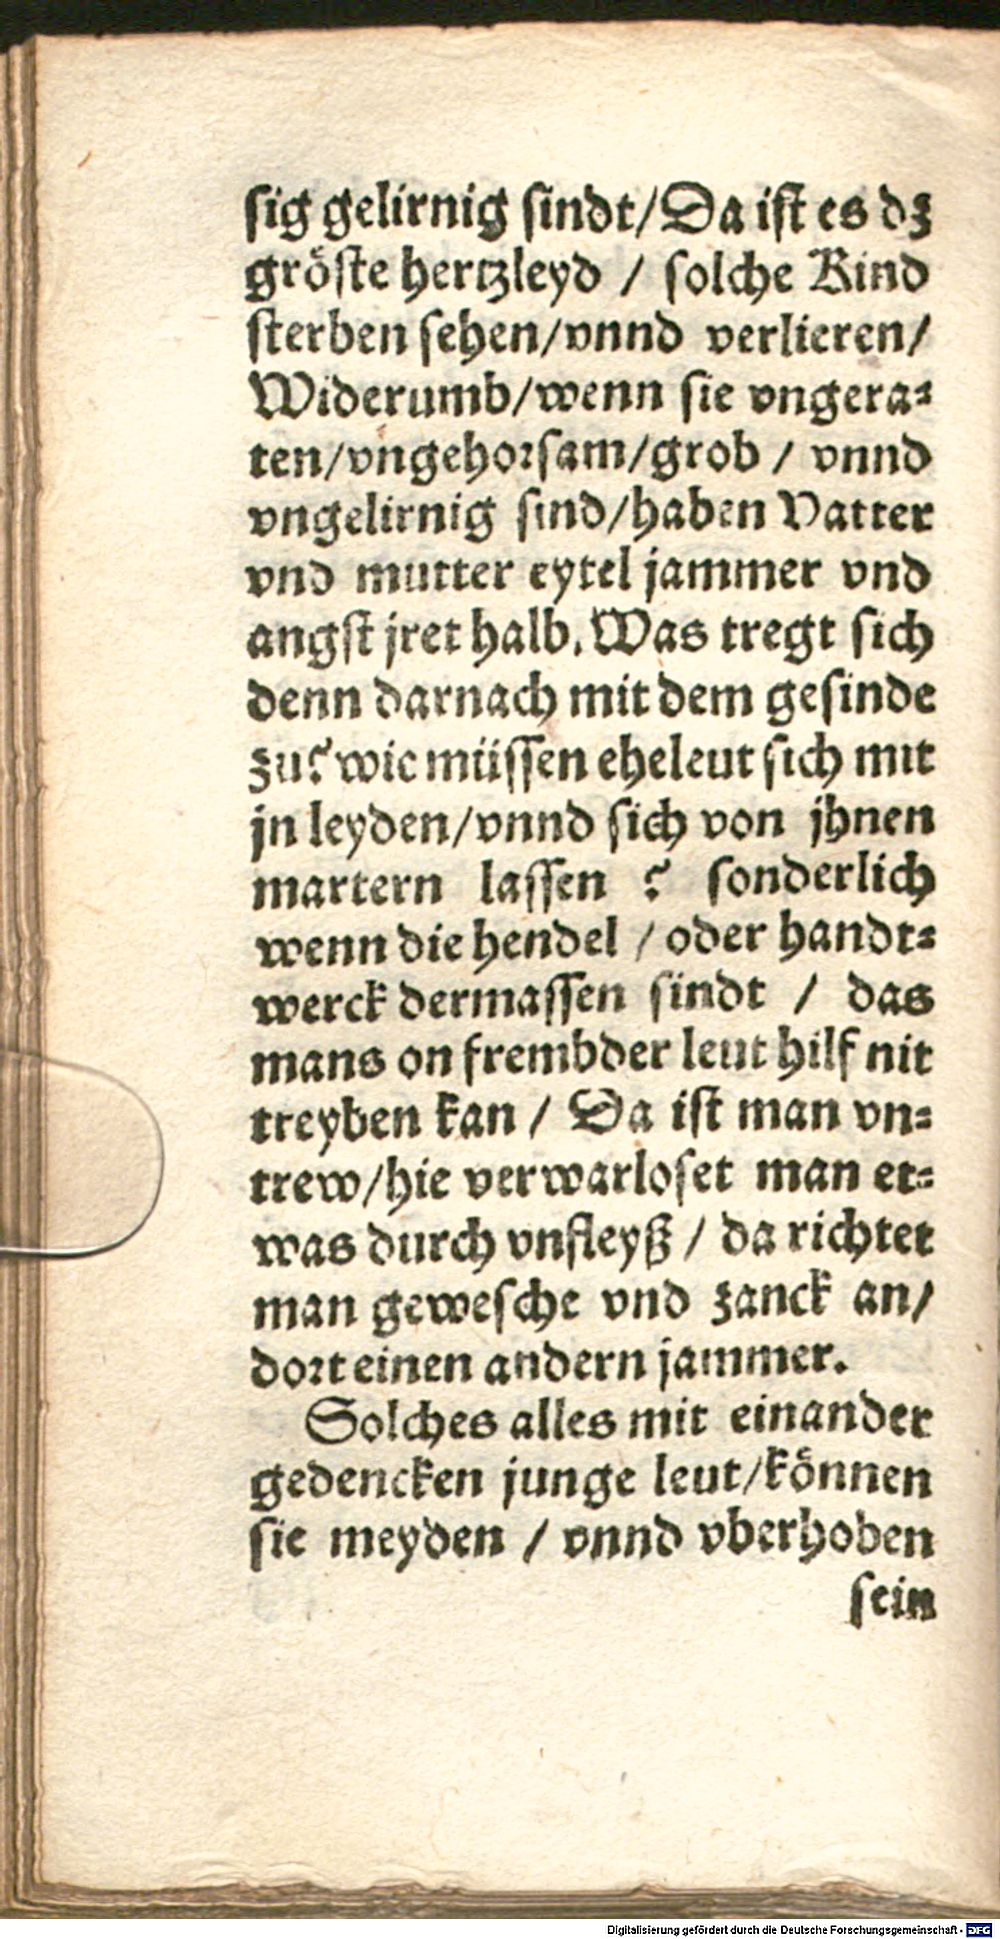 ſig gelirnig ſindt/Da iſt es dz
gröſte hertzleyd / ſolche Kind
ſterben ſehen/vnnd verlieren/
Widerumb/wenn ſie vngera⸗
ten/vngehorſam/grob / vnnd
vngelirnig ſind/haben Vatter
vnd mutter eytel jammer vnd
angſt jret halb. Was tregt ſich
denn darnach mit dem geſinde
zu? wie müſſen eheleut ſich mit
jn leyden/vnnd ſich von jhnen
martern laſſen ? ſonderlich
wenn die hendel / oder handt⸗
werck dermaſſen ſindt / das
mans on frembder leut hilf nit
treyben kan / Da iſt man vn⸗
trew/hie verwarloſet man et⸗
was durch vnfleyß / da richtet
man geweſche vnd zanck an/
dort einen andern jammer.
Solches alles mit einander
gedencken junge leut/können
ſie meyden / vnnd vberhoben
ſein
Digitalisierung gefördert durch die Deutsche Forschungsgemeinschaft - DFG